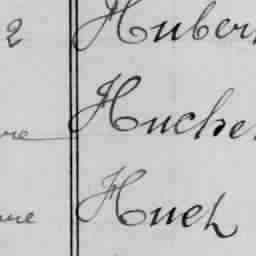 2 Huber
re Huche
re Huet